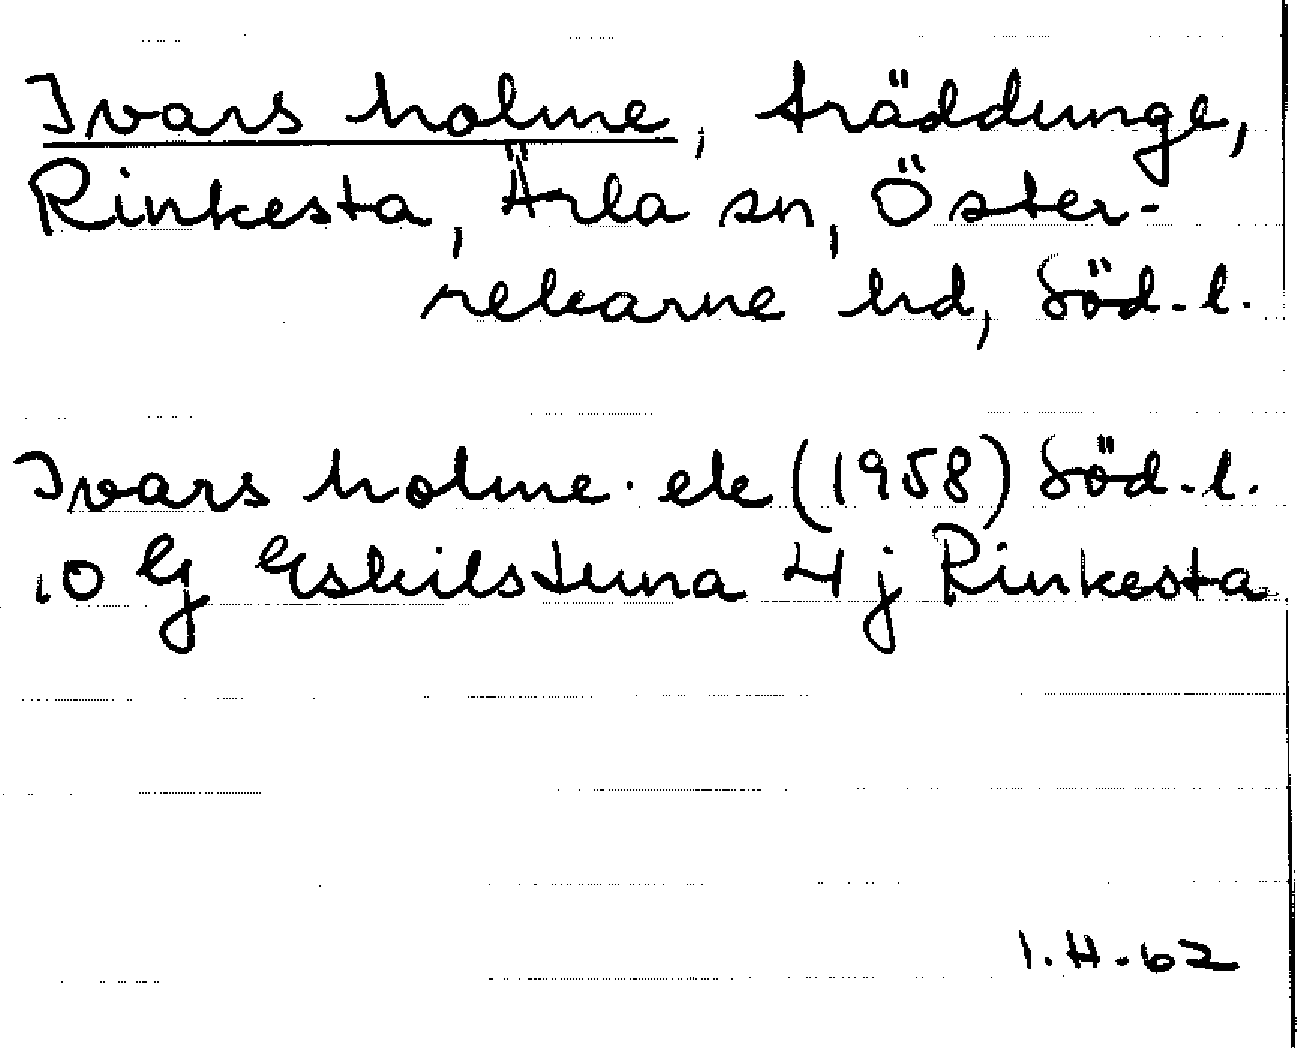 Ivars holme, träddunge,
Rinkesta, Ärla sn, Öster-
rekarne hd, Söd.l.
Ivars holme. ek (1958) Söd.l.
10 G Eskilstuna 4 j Rinkesta
1.H.62